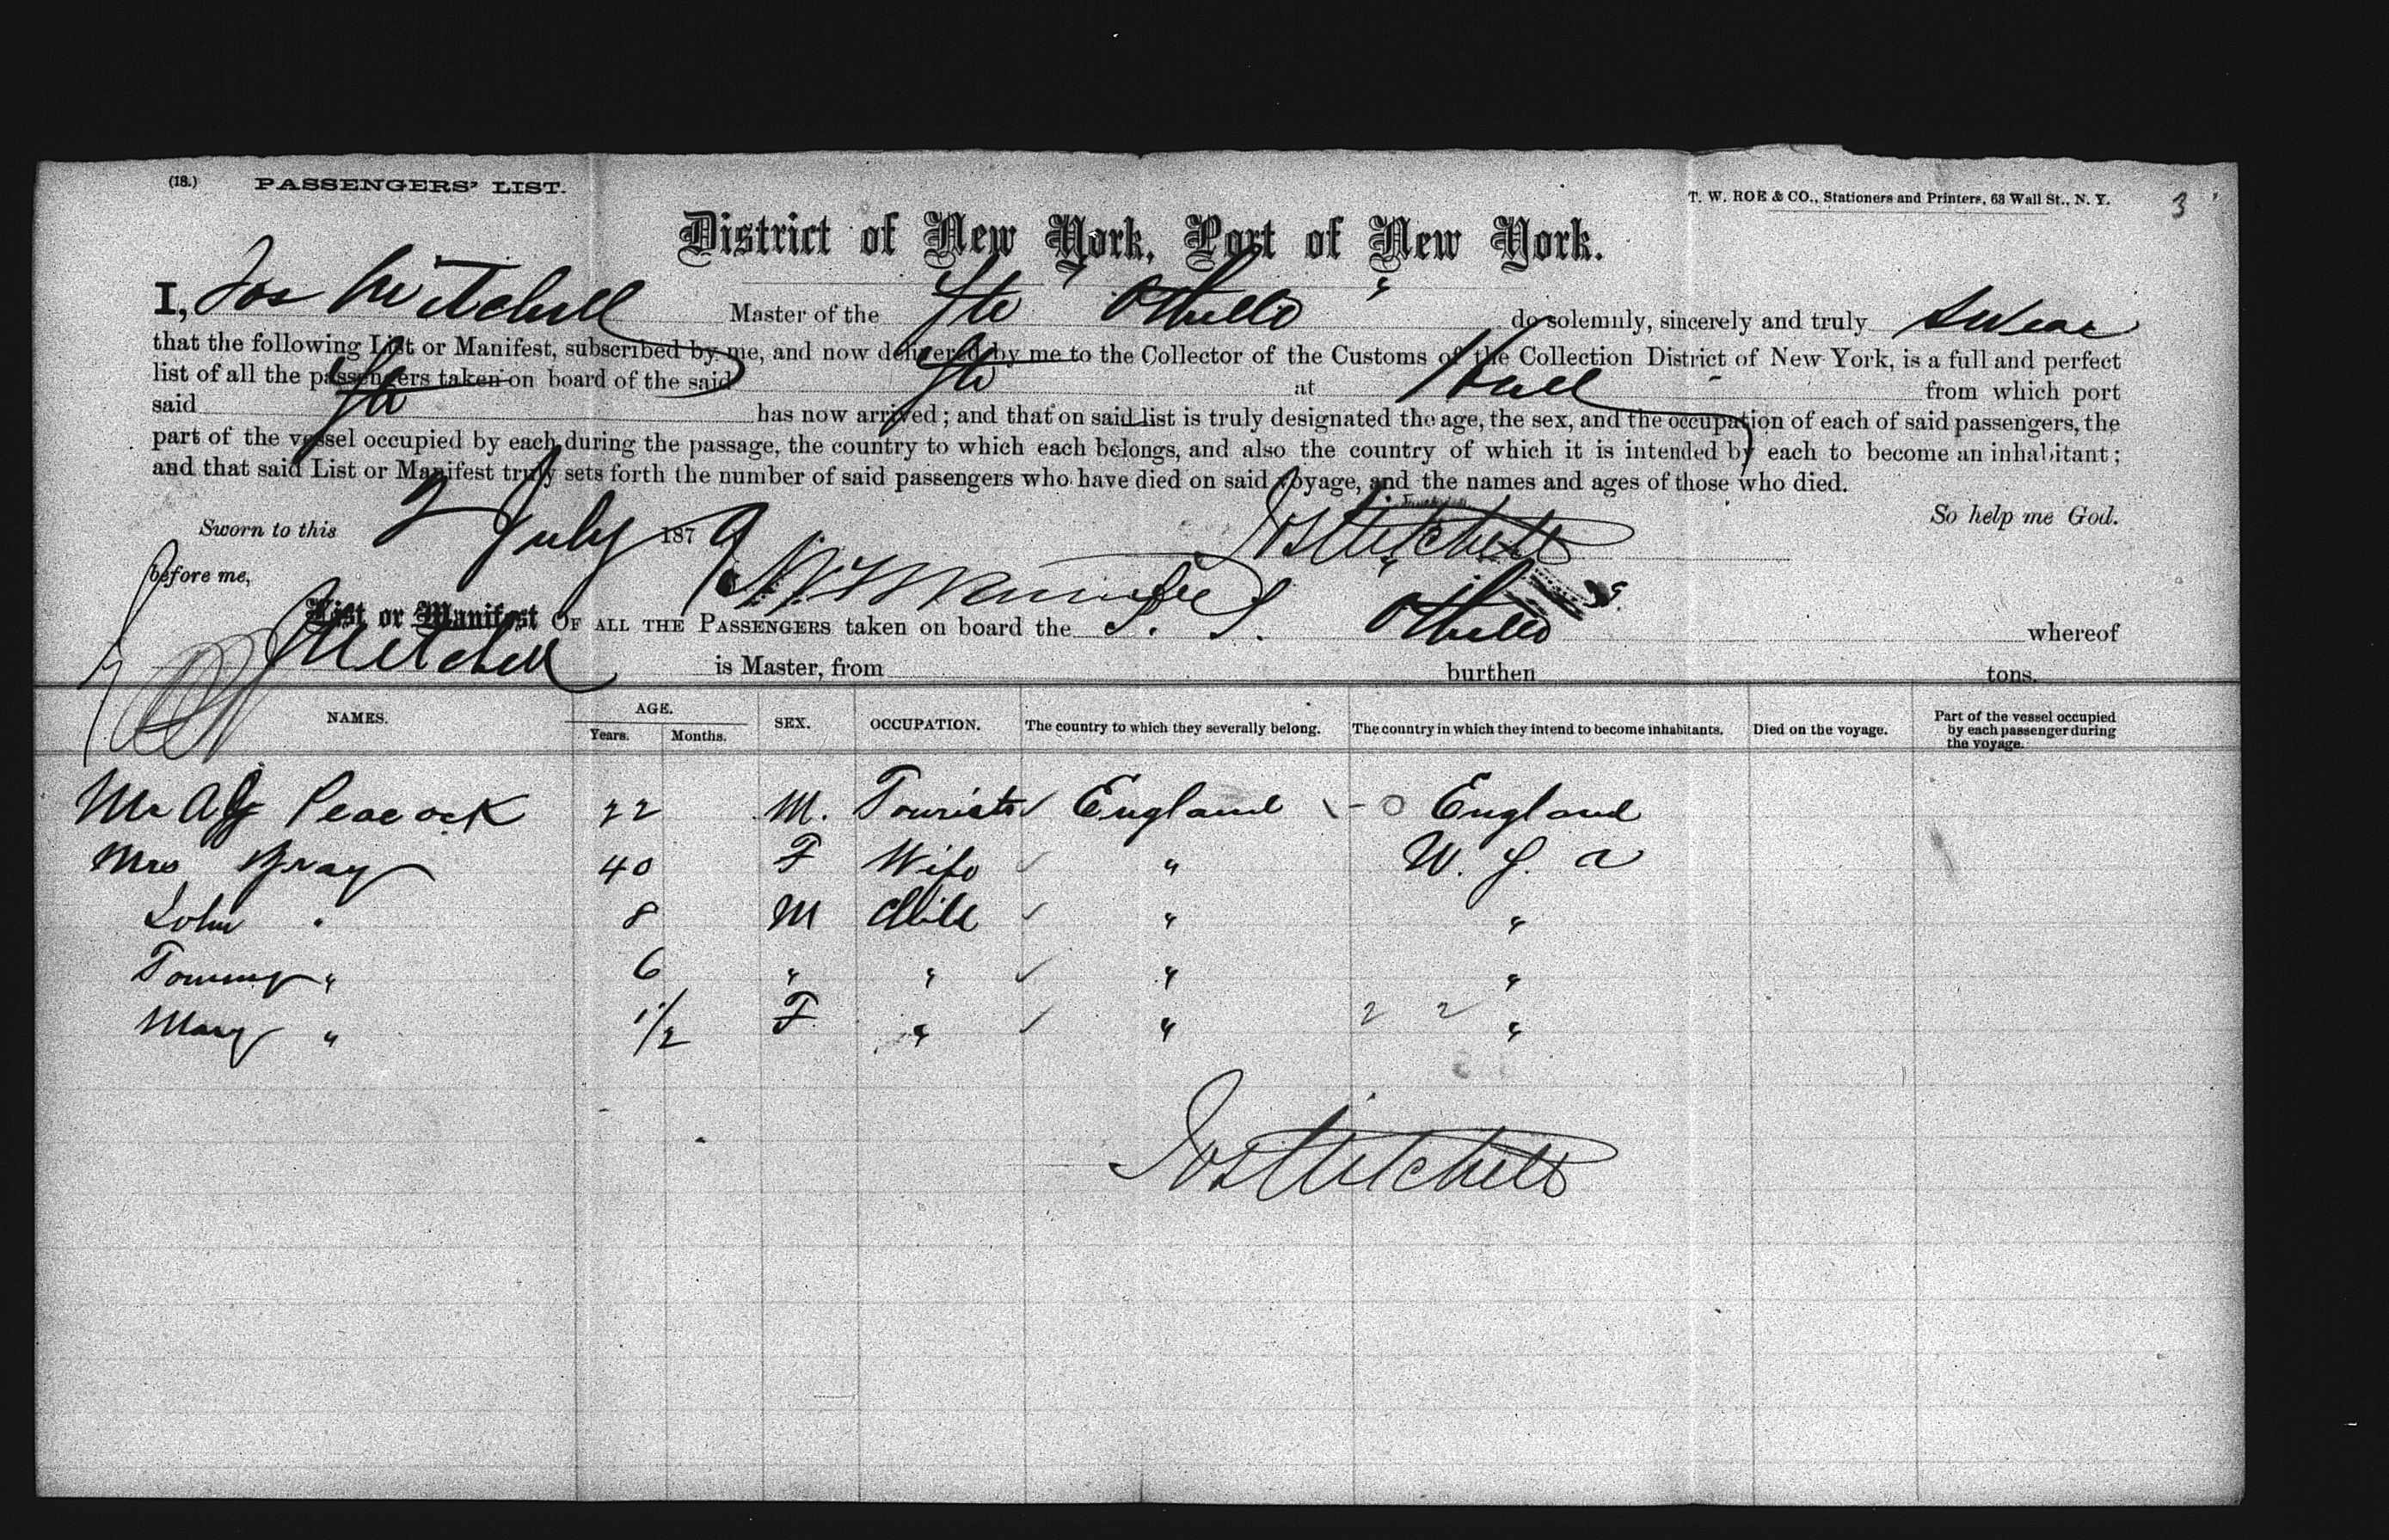 (18.) PASSENGERS' LIST.
T. W. ROE & CO., Stationers and Printers, 63 Wall St., N. Y. 3
District of New York, Port of New York.
I, Jos Mitchell Master of the Str "Othello" do solemnly, sincerely and truly swear
that the following List or Manifest, subscribed by me, and now delivered by me to the Collector of the Customs of the Collection District of New York, is a full and perfect
list of all the passengers taken on board of the said Str at Hull from which port
said Str has now arrived; and that on said list is truly designated the age, the sex, and the occupation of each of said passengers, the
part of the vessel occupied by each during the passage, the country to which each belongs, and also the country of which it is intended by each to become an inhabitant;
and that said List or Manifest truly sets forth the number of said passengers who have died on said voyage, and the names and ages of those who died.
So help me God.
Sworn to this 2 July 1879 Jos Mitchell
before me,
List or Manifest OF ALL THE PASSENGERS taken on board the S. S. Othello whereof
J Mitchell is Master, from burthen tons.
NAMES. AGE. Years. Months. SEX. OCCUPATION. The country to which they severally belong. The country in which they intend to become inhabitants. Died on the voyage. Part of the vessel occupied by each passenger during the voyage.
Mr A J Peacock 22 M. Tourists England England
Mrs Gray 40 F Wife " U. S. a
John " 8 M Child " "
Tommy " 6 " " " "
Mary " 1/2 F " " 2 2 "
Jos Mitchell